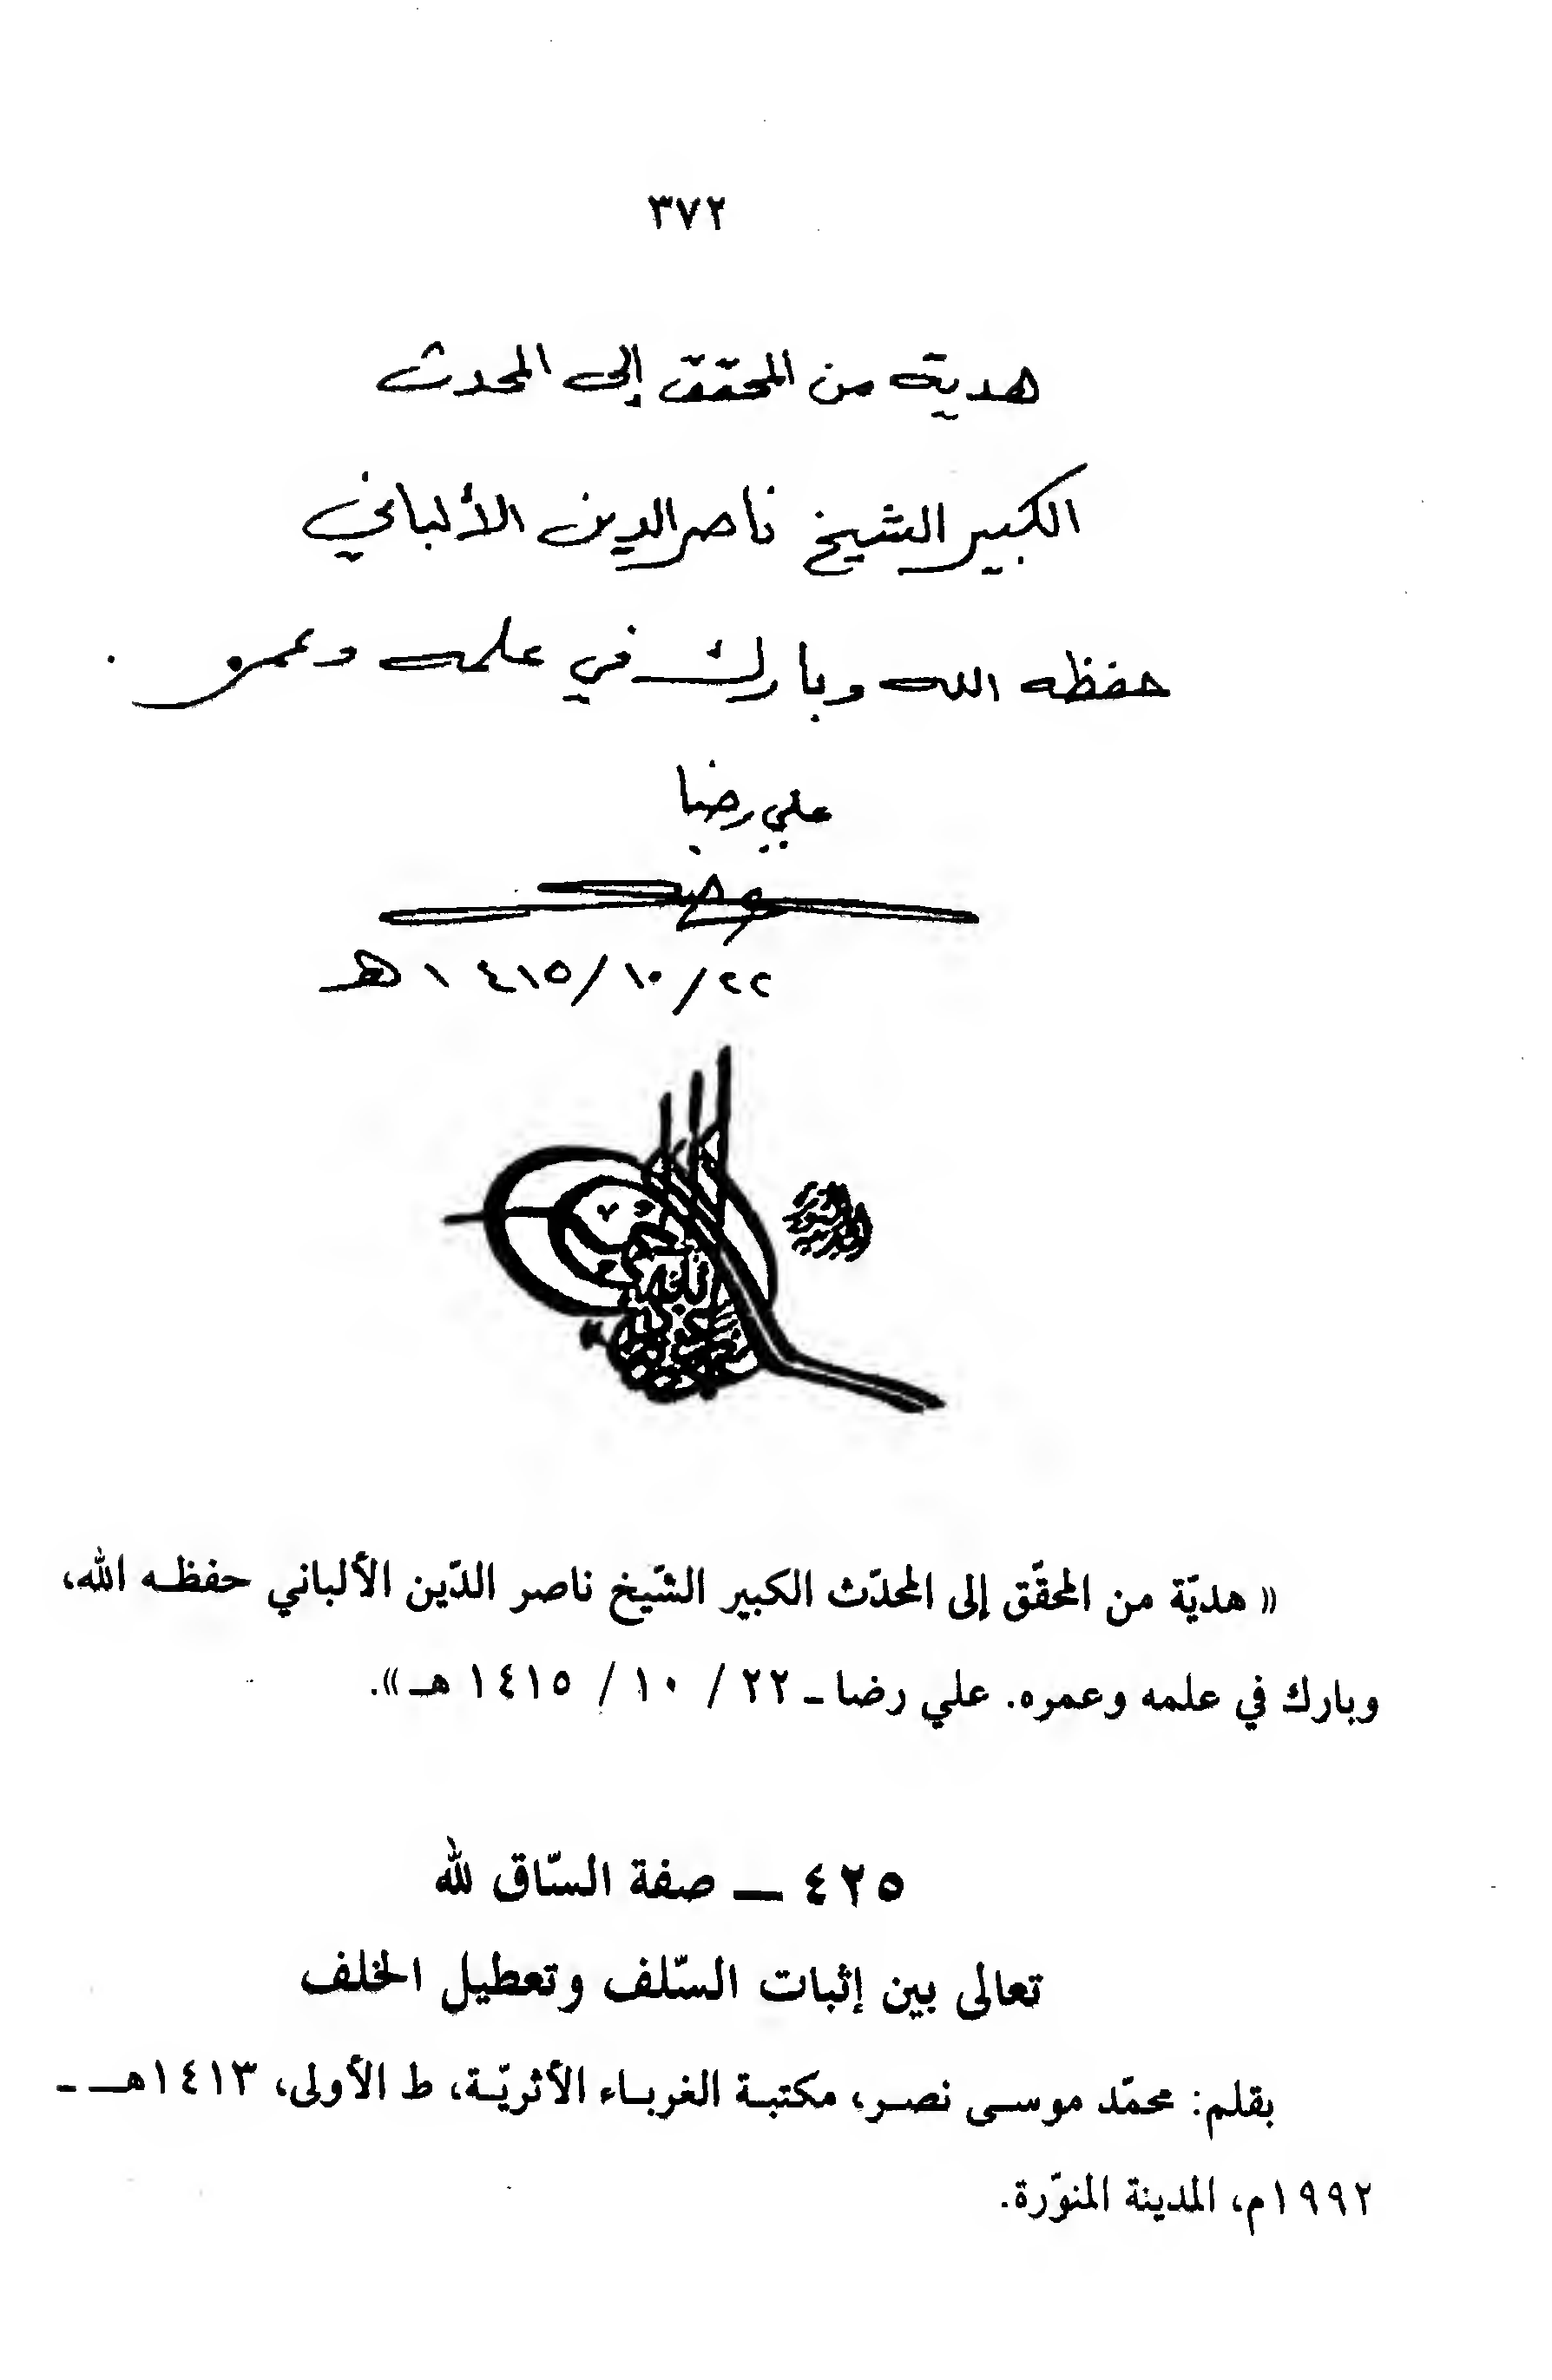 ٣٧٢
هدية من المحقق إلى المحدث
الكبير الشيخ ناصر الدين الألباني
حفظه الله وبارك في علمه وعمره .
علي رضا
٢٢/١٠/١٤١٥ هـ
« هديّة من المحقّق إلى المحدّث الكبير الشّيخ ناصر الدّين الألباني حفظه الله،
وبارك في علمه وعمره. علي رضا ـ ٢٢ / ١٠ / ١٤١٥ هـ ».
٤٢٥ ـ صفة السّاق لله
تعالى بين إثبات السّلف وتعطيل الخلف
بقلم: محمّد موسى نصر، مكتبة الغرباء الأثريّة، ط الأولى، ١٤١٣هـ ـ
١٩٩٢م، المدينة المنوّرة.